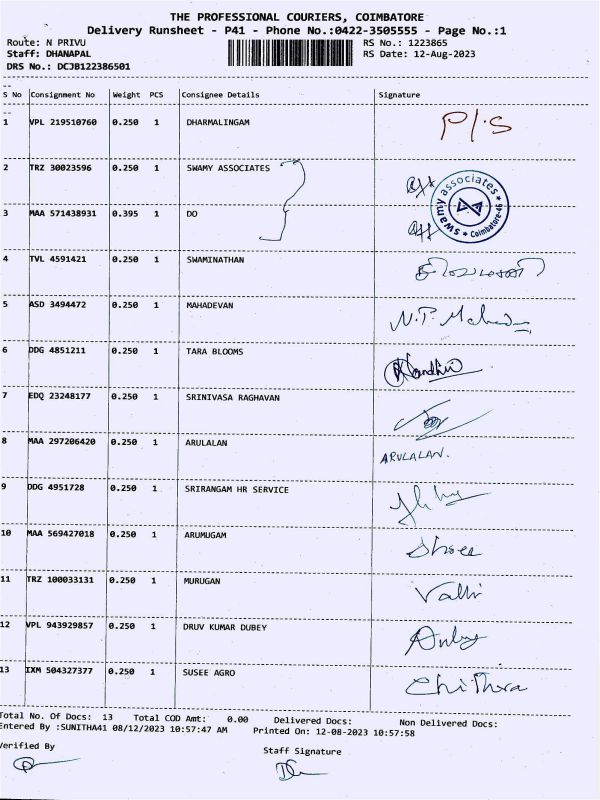 THE PROFESSIONAL COURIERS, COIMBATORE
Delivery Runsheet - P41 - Phone No.:0422-3505555 - Page No.:1
Route: N PRIVU RS No.: 1223865
Staff: DHANAPAL RS Date: 12-Aug-2023
DRS No.: DCJB122386501
S No Consignment No Weight PCS Consignee Details Signature
1 VPL 219510760 0.250 1 DHARMALINGAM P/S
2 TRZ 30023596 0.250 1 SWAMY ASSOCIATES
swamy associates * Coimbatore-46 *
3 MAA 571438931 0.395 1 DO
4 TVL 4591421 0.250 1 SWAMINATHAN
5 ASD 3494472 0.250 1 MAHADEVAN
6 DDG 4851211 0.250 1 TARA BLOOMS
7 EDQ 23248177 0.250 1 SRINIVASA RAGHAVAN
8 MAA 297206420 0.250 1 ARULALAN ARULALAN.
9 DDG 4951728 0.250 1 SRIRANGAM HR SERVICE
10 MAA 569427018 0.250 1 ARUMUGAM Shree
11 TRZ 100033131 0.250 1 MURUGAN Valli
12 VPL 943929857 0.250 1 DRUV KUMAR DUBEY
13 IXM 504327377 0.250 1 SUSEE AGRO Chithra
Total No. Of Docs: 13 Total COD Amt: 0.00 Delivered Docs: Non Delivered Docs:
Entered By :SUNITHA41 08/12/2023 10:57:47 AM Printed On: 12-08-2023 10:57:58
Verified By Staff Signature